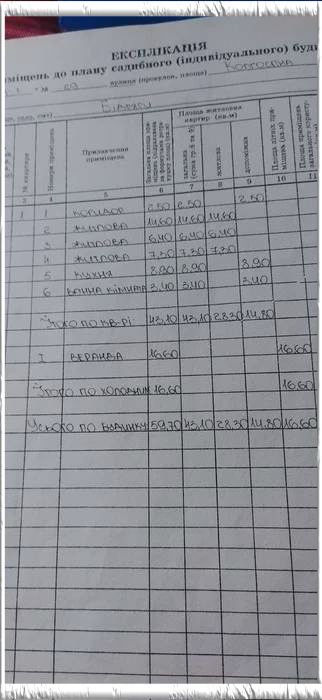 ЕКСПЛІКАЦІЯ
міщень до плану садибного (індивідуального) буди
вулиця (провулок, площа) Колгоспна
№ квартири
Номери приміщень
Призначення приміщень
Площа житлових квартир (кв.м)
загальна (сума гр.8 та 9)
житлова
допоміжна
3 4 5 6 7 8 9 10 11
1 1 коридор 2.50 2.50 2.50
2 житлова 14.60 14.60 14.60
3 житлова 6.40 6.40 6.40
4 житлова 7.30 7.30 7.30
5 кухня 8.90 8.90 8.90
6 ванна кімната 3.40 3.40 3.40
Ітого по кв-рі 43.10 43.10 28.30 14.80
I веранда 16.60 16.60
Ітого по холодним 16.60 16.60
Усього по будинку 59.70 43.10 28.30 14.80 16.60